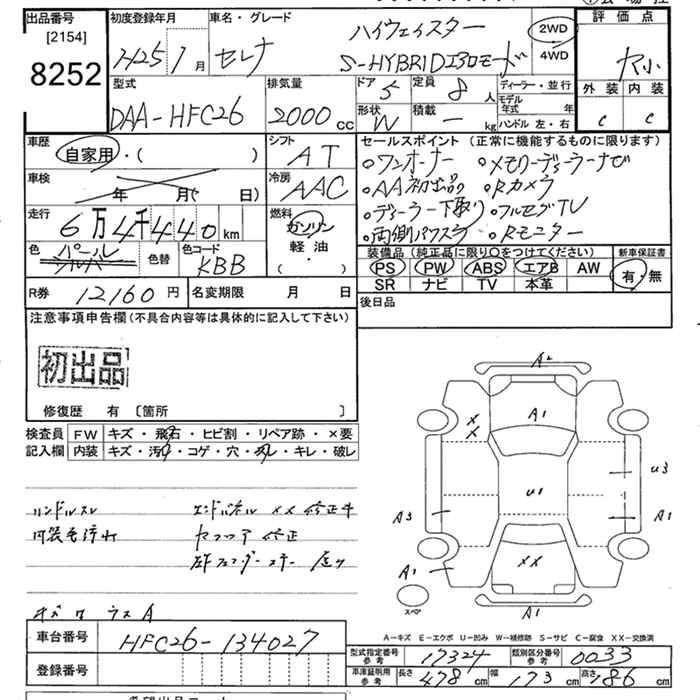 出品番号
[2154]
8252
初度登録年月
H25 1 月
車名・グレード
セレナ
ハイウェイスター
S-HYBRID
2WD
4WD
評価点
外装 内装
C C
型式
DAA-HFC26
排気量
2000 cc
ドア 5
定員 8 人
形状 W
積載 ー kg
ディーラー・並行
モデル年式 年
ハンドル 左・右
車歴
自家用・( )
シフト
AT
車検
年 月(や 日)
冷房
AAC
走行
6万4千440 km
燃料
ガソリン
軽油
( )
色
パール
色替
色コード
KBB
R券 12160 円
名変期限 月 日
セールスポイント (正常に機能するものに限ります)
○ワンオーナー ○メモリーディーラーナビ
○AA初出品 ○Rカメラ
○ディーラー下取り ○フルセグTV
○両側パワスラ ○Rモニター
装備品 (純正品に限り○をつけてください)
PS PW ABS エアB AW
SR ナビ TV 本革
新車保証書
有・無
後日品
注意事項申告欄 (不具合内容等は具体的に記入して下さい)
初出品
修復歴 有 〔箇所 〕
検査員 FW キズ・飛石・ヒビ割・リペア跡・×要
記入欄 内装 キズ・汚れ・コゲ・穴・スレ・キレ・破レ
ハンドルスレ
エンドパネル XX 修正キ
内装毛汚れ
A2
A1
X
X
U3
U1
A3
A1
XX
A1
スペア
A1
A-キズ E-エクボ U-凹み W-補修跡 S-サビ C-腐食 XX-交換済
車台番号
HFC26-134027
登録番号
型式指定番号 参考 17324
類別区分番号 参考 0033
車庫証明用 参考 長さ 478 cm 幅 173 cm 高さ 186 cm